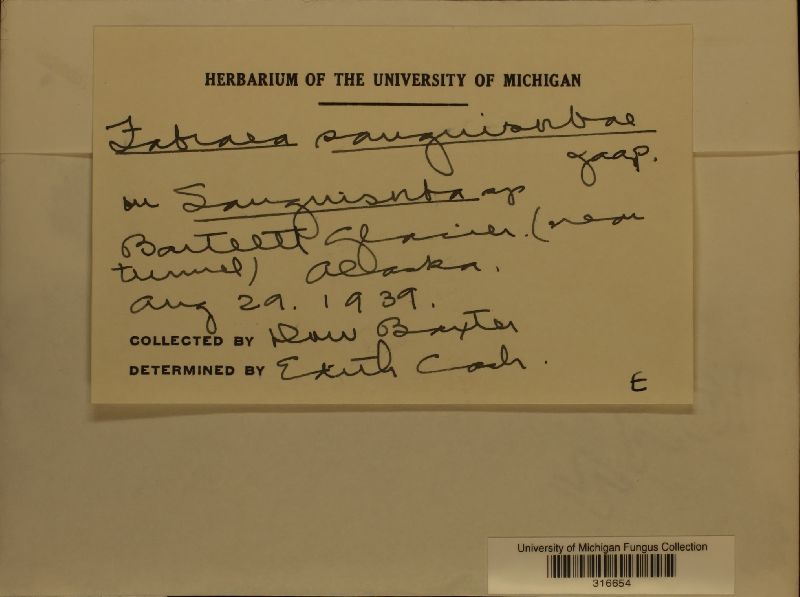 HERBARIUM OF THE UNIVERSITY OF MICHIGAN
Fabraea sanguisorbae
Jaap.
on Sanguisorba sp
Bartlett Glacier. (near
tunnel) Alaska.
Aug 29. 1939.
COLLECTED BY Dow Baxter
DETERMINED BY Edith Cash.
E
University of Michigan Fungus Collection
316654